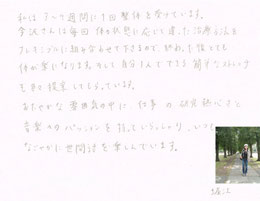 私は 1〜2週間に1回整体を受けています。
さんは毎回 体の状態に応じて違った治療を
に組み合わせて下さるので、終わった後とても
体が楽になります。そして自分でできる簡単なストレッチ
も提案してもらっています。
あたたかな雰囲気の中に、仕事の研究熱心さと
音楽へのパッションを持っていらっしゃり、いつも
なごやかに世間話を楽しんでいます。